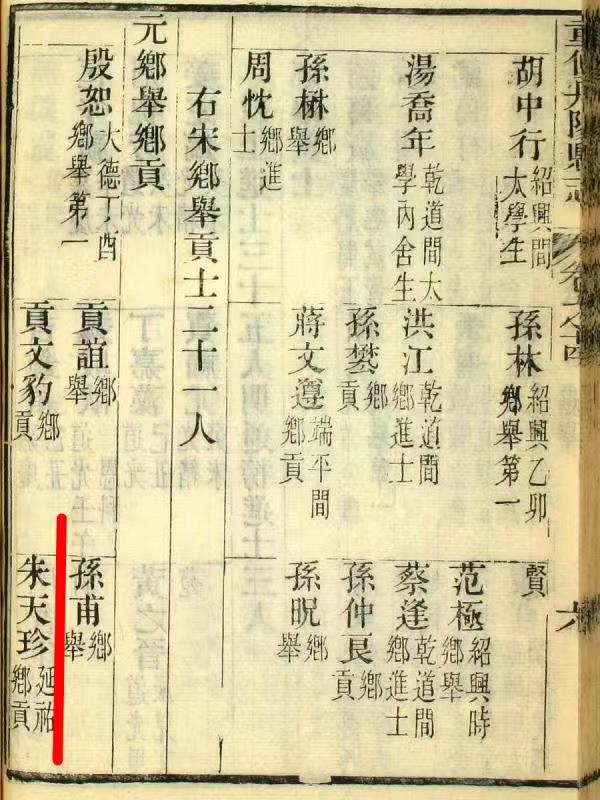 重修丹陽縣志
六
胡中行 紹興間太學生
孫林 紹興乙卯鄉舉第一
賢
范極 紹興時鄉舉
湯喬年 乾道間太學內舍生
洪江 乾道間鄉進士
蔡逢 乾道間鄉進士
孫楙 鄉舉
孫 鄉貢
孫仲艮 鄉貢
周忱 鄉進士
蔣文遵 端平間鄉貢
孫昵 鄉舉
右宋鄉舉貢士二十一人
元鄉舉鄉貢
殷恕 大德丁酉鄉舉第一
貢誼 鄉舉
孫甫 鄉舉
貢文豹 鄉貢
朱天珍 延祐鄉貢